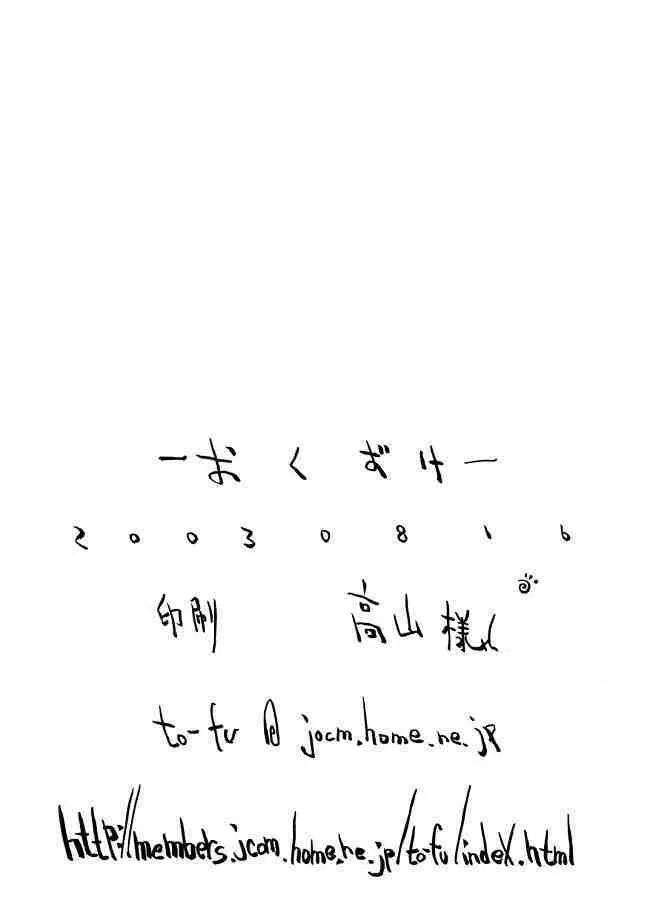 ーおくづけー
20030816
印刷 高山様
to-fu @ jocm.home.ne.jp
http://members.jcom.home.ne.jp/to-fu/index.html